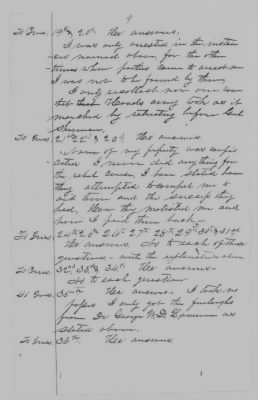 9
To Ques. 19th & 20th He answers.
I was only arrested in the instan-
ces named above for the other
times when parties came to arrest me
I was not to be found by them,
I only was that near our con-
Hoods army took as it
marched by retreating before Genl
Sherman.
To Ques. 21st 22nd & 23rd He answers
None of my property was confis-
cated I never did anything for
the rebel cause, I have stated how
they attempted to compel me to
aid them and the success they
had, How they molested me and
how I paid them back
To Ques. 24th 25th 26th 27th 28th 29th 30th & 31st
He answers, No to each of these
questions with the explanations above
To Ques. 32nd 33rd & 34th He answers
No to each question
To Ques. 35th He answers. I took no
papers I only got the furloughs
from Dr George W. D. as
stated above.
To Ques. 36th He answers